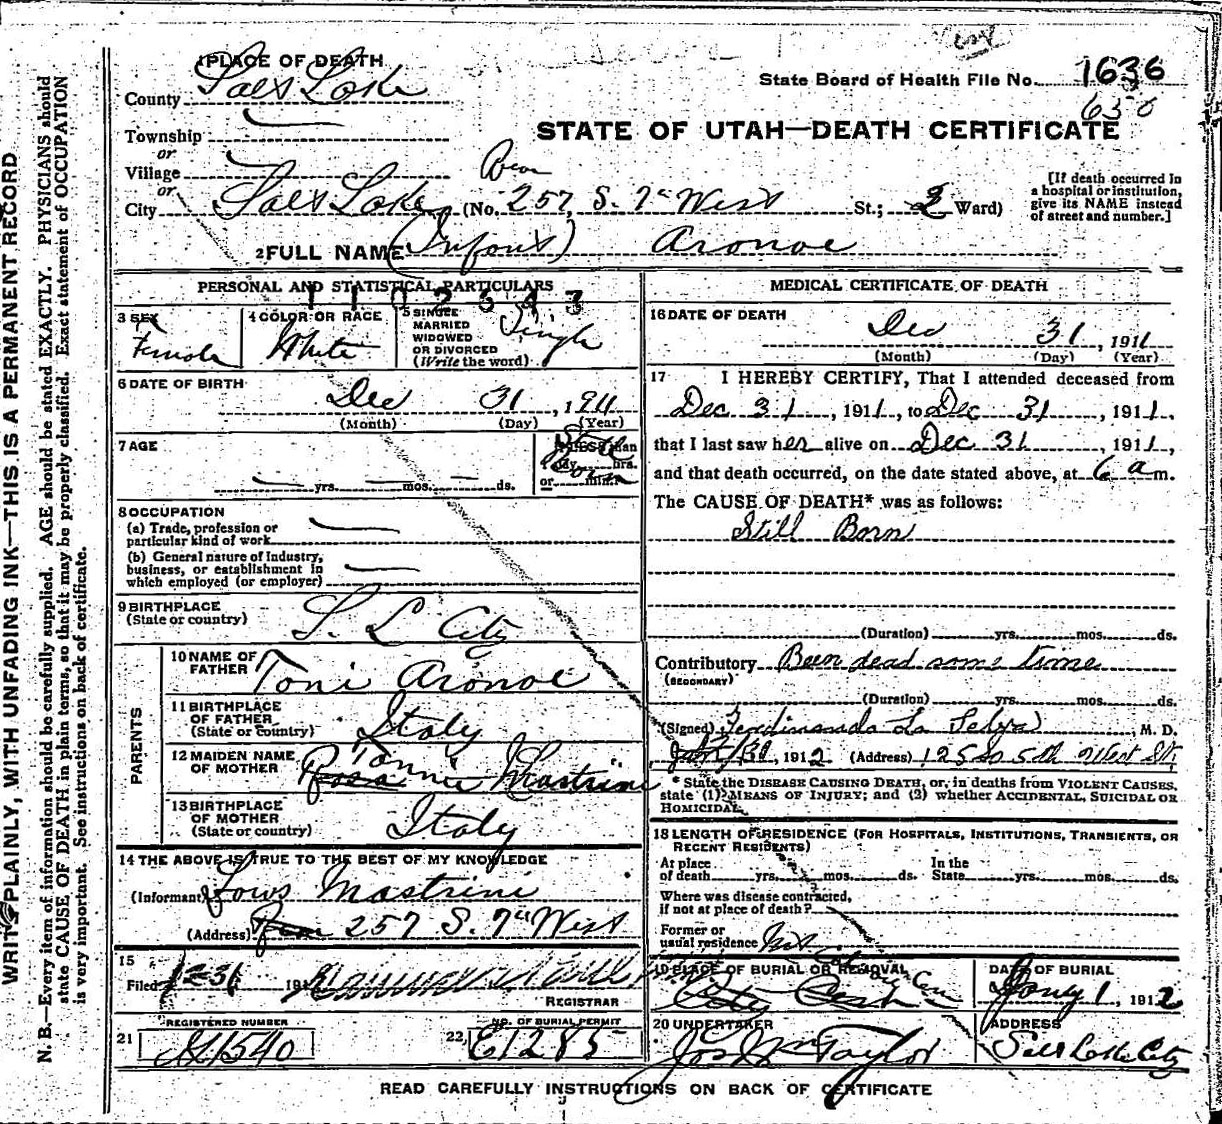 1 PLACE OF DEATH
County Salt Lake
State Board of Health File No. 1636
650
Township
or
STATE OF UTAH—DEATH CERTIFICATE
Village
or
Rear
City Salt Lake (No. 257, S. 7th West St.; 2 Ward)
[If death occurred in
a hospital or institution,
give its NAME instead
of street and number.]
2 FULL NAME (Infant) Aronoe
PERSONAL AND STATISTICAL PARTICULARS
1102343
3 SEX
Female
4 COLOR OR RACE
White
5 SINGLE
MARRIED
WIDOWED
OR DIVORCED
(Write the word)
Single
6 DATE OF BIRTH
Dec 31, 1911
(Month) (Day) (Year)
7 AGE
yrs. mos. ds.
If LESS than
1 day hrs.
or min.
Still
Born
8 OCCUPATION
(a) Trade, profession or
particular kind of work
(b) General nature of industry,
business, or establishment in
which employed (or employer)
9 BIRTHPLACE
(State or country)
S. L. City
PARENTS
10 NAME OF
FATHER
Toni Aronoe
11 BIRTHPLACE
OF FATHER
(State or country)
Italy
12 MAIDEN NAME
OF MOTHER
Rosa Tannie Mastrini
13 BIRTHPLACE
OF MOTHER
(State or country)
Italy
14 THE ABOVE IS TRUE TO THE BEST OF MY KNOWLEDGE
(Informant) Lows Mastrini
(Address) Rear 257 S. 7th West
15
Filed 12-31 191
REGISTRAR
21
REGISTERED NUMBER
1540
22
NO. OF BURIAL PERMIT
E1285
MEDICAL CERTIFICATE OF DEATH
16 DATE OF DEATH
Dec 31, 1911
(Month) (Day) (Year)
17 I HEREBY CERTIFY, That I attended deceased from
Dec 31, 1911, to Dec 31, 1911,
that I last saw her alive on Dec 31, 1911,
and that death occurred, on the date stated above, at 6 a m.
The CAUSE OF DEATH* was as follows:
Still Born
(Duration) yrs. mos. ds.
Contributory Been dead some time
(SECONDARY)
(Duration) yrs. mos. ds.
(Signed) Ferdinando La Selva, M. D.
1912 (Address) 125 So 5th West St,
* State the DISEASE CAUSING DEATH, or, in deaths from VIOLENT CAUSES,
state (1) MEANS OF INJURY; and (2) whether ACCIDENTAL, SUICIDAL OR
HOMICIDAL.
18 LENGTH OF RESIDENCE (FOR HOSPITALS, INSTITUTIONS, TRANSIENTS, OR
RECENT RESIDENTS)
At place
of death yrs. mos. ds.
In the
State yrs. mos. ds.
Where was disease contracted,
if not at place of death?
Former or
usual residence
19 PLACE OF BURIAL OR REMOVAL
City Cem
DATE OF BURIAL
Jany 1, 1912
20 UNDERTAKER
Jos Wm Taylor
ADDRESS
Salt Lake City
READ CAREFULLY INSTRUCTIONS ON BACK OF CERTIFICATE
WRITE PLAINLY, WITH UNFADING INK—THIS IS A PERMANENT RECORD
N. B.—Every item of information should be carefully supplied. AGE should be stated EXACTLY. PHYSICIANS should
state CAUSE OF DEATH in plain terms, so that it may be properly classified. Exact statement of OCCUPATION
is very important. See instructions on back of certificate.